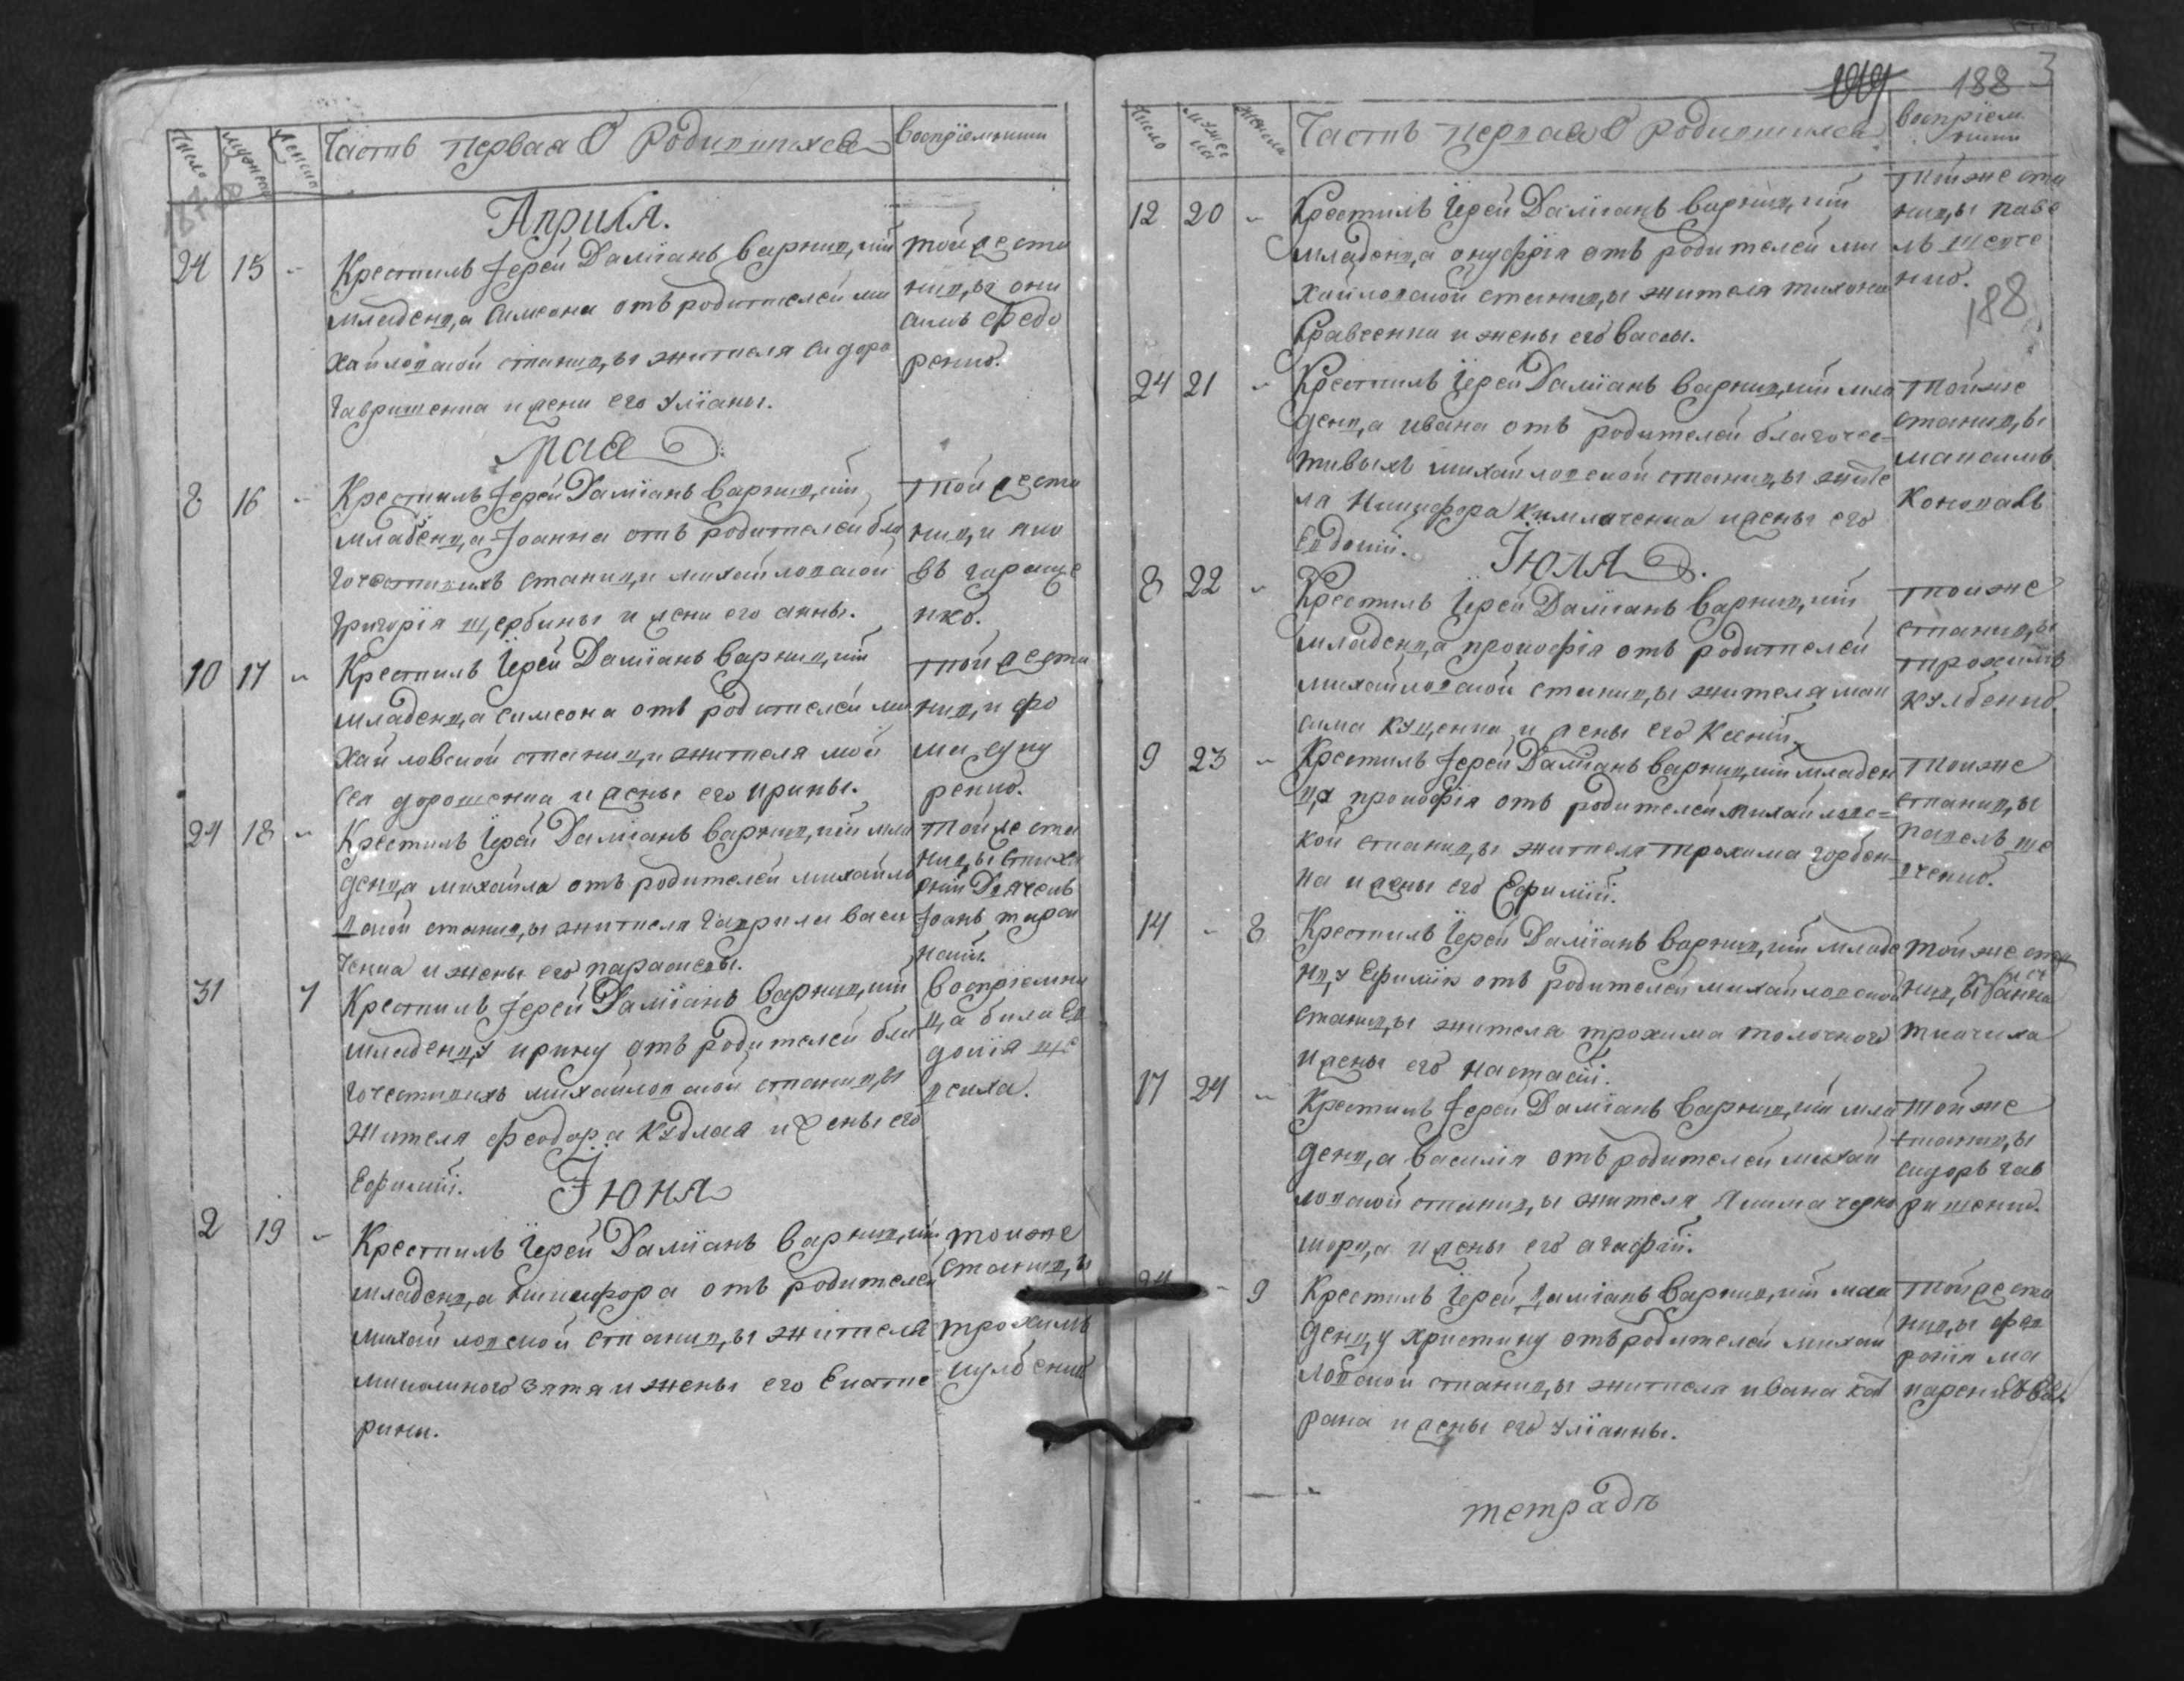 Число
Мужеска
Женска
Часть первая О Родившихся
Воспріемники
Априля.
24 15 Крестилъ Іерей Даміанъ Варницкій
младенца Симеона отъ родителей ми
хайловской станицы жителя Сидора
Гавришенка и жени его Уліаны.
той же ста
ницы они
симъ Федо
ренко.
Мая
8 16 Крестилъ Іерей Даміанъ Варницкій
младенца Іоанна отъ родителей бла
гочестивихъ станици михайловской
Григорія Щербины и жени его анны.
той же ста
ници яко
въ
нко.
10 17 Крестилъ Іерей Даміанъ Варницкій
младенца Симеона отъ родителей ми
хайловской станици жителя мой
сея дорошенка и жены его ирины.
той же ста
ници фо
ма
ренко.
24 18 Крестилъ Іерей Даміанъ Варницкій мла
денца михайла отъ родителей михайло
вской станицы жителя Гаврила Васи
ченка и жены его параскевы.
той же ста
ницы
Іоанъ
31 7 Крестилъ Іерей Даміанъ Варницкій
младенцу ирину отъ родителей бла
гочестивихъ михайловской станицы
жителя Феодора Кудлая и жены его
Ефиміи.
Воспріемни
ца била Ев
докія ше
вчиха.
Іюня
2 19 Крестилъ Іерей Даміанъ Варницкій
младенца Никифора отъ родителей
михайловской станицы жителя
зятя и жены его Екате
рины.
той же
станицы
трохимъ
188
Число
Мужес
ка
Женска
Часть первая О родившихся
воспріем
ники
12 20 Крестилъ Іерей Даміанъ Варницкій
младенца онуфрія отъ родителей ми
хайловской станицы жителя тихона
Кравченка и жены его Вассы.
той же ста
ницы паве
лъ шевче
нко.
188
24 21 Крестилъ Іерей Даміанъ Варницкій мла
денца ивана отъ родителей благочес=
тивыхъ михайловской станицы жите
ля Никифора и жены его
Евдокіи.
той же
станицы
максимъ
Коновалъ
Іюля
8 22 Крестилъ Іерей Даміанъ Варницкій
младенца прокофія отъ родителей
михайловской станицы жителя мак
сима Куценка и жены его Ксеніи.
той же
станицы
трохимъ
кулбенко.
9 23 Крестилъ Іерей Даміанъ Варницкій младен
ца прокофія отъ родителей михайловс=
кой станицы жителя трохима горбен=
ка и жены его Ефиміи.
той же
станицы
павелъ ше
вченко.
14 8 Крестилъ Іерей Даміанъ Варницкій младе
нцу Ефимію отъ родителей михайловской
станицы жителя трохима толочного
и жены его настасіи.
той же ста
ницы анна
ткачиха
17 24 Крестилъ Іерей Даміанъ Варницкій мла
денца Василія отъ родителей михай
ловской станицы жителя Якима черно
морца и жены его агафіи.
той же
станицы
сидоръ гав
ришенко.
24 9 Крестилъ Іерей Даміанъ Варницкій мла
денцу христину отъ родителей михай
ловской станицы жителя ивана кат
рана и жены его Уліанны.
той же ста
ницы фев
ронія ма
тетрадь